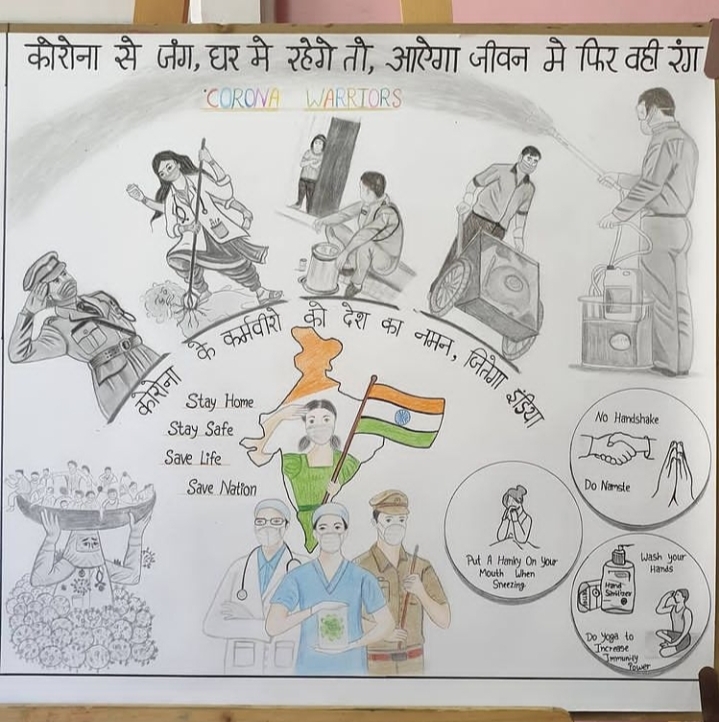 कोरोना से जंग, घर मे रहेगे तो, आऐगा जीवन मे फिर वही रंग
CORONA WARRIORS
कोरोना के कर्मवीरो को देश का नमन, जितेगा इंडिया
Stay Home
Stay Safe
Save Life
Save Nation
No Handshake
Do Namste
Put A Hanky On Your
Mouth When
Sneezing
Wash your
Hands
Hand
Sanitizer
Do Yoga to
Increase
Immunity
Power